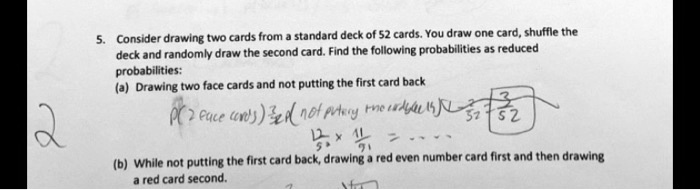 5. Consider drawing two cards from a standard deck of 52 cards. You draw one card, shuffle the
deck and randomly draw the second card. Find the following probabilities as reduced
probabilities:
(a) Drawing two face cards and not putting the first card back
P(2 face cards) P(not putting the 3/52
2
12/52 × 11/51 = ....
(b) While not putting the first card back, drawing a red even number card first and then drawing
a red card second.